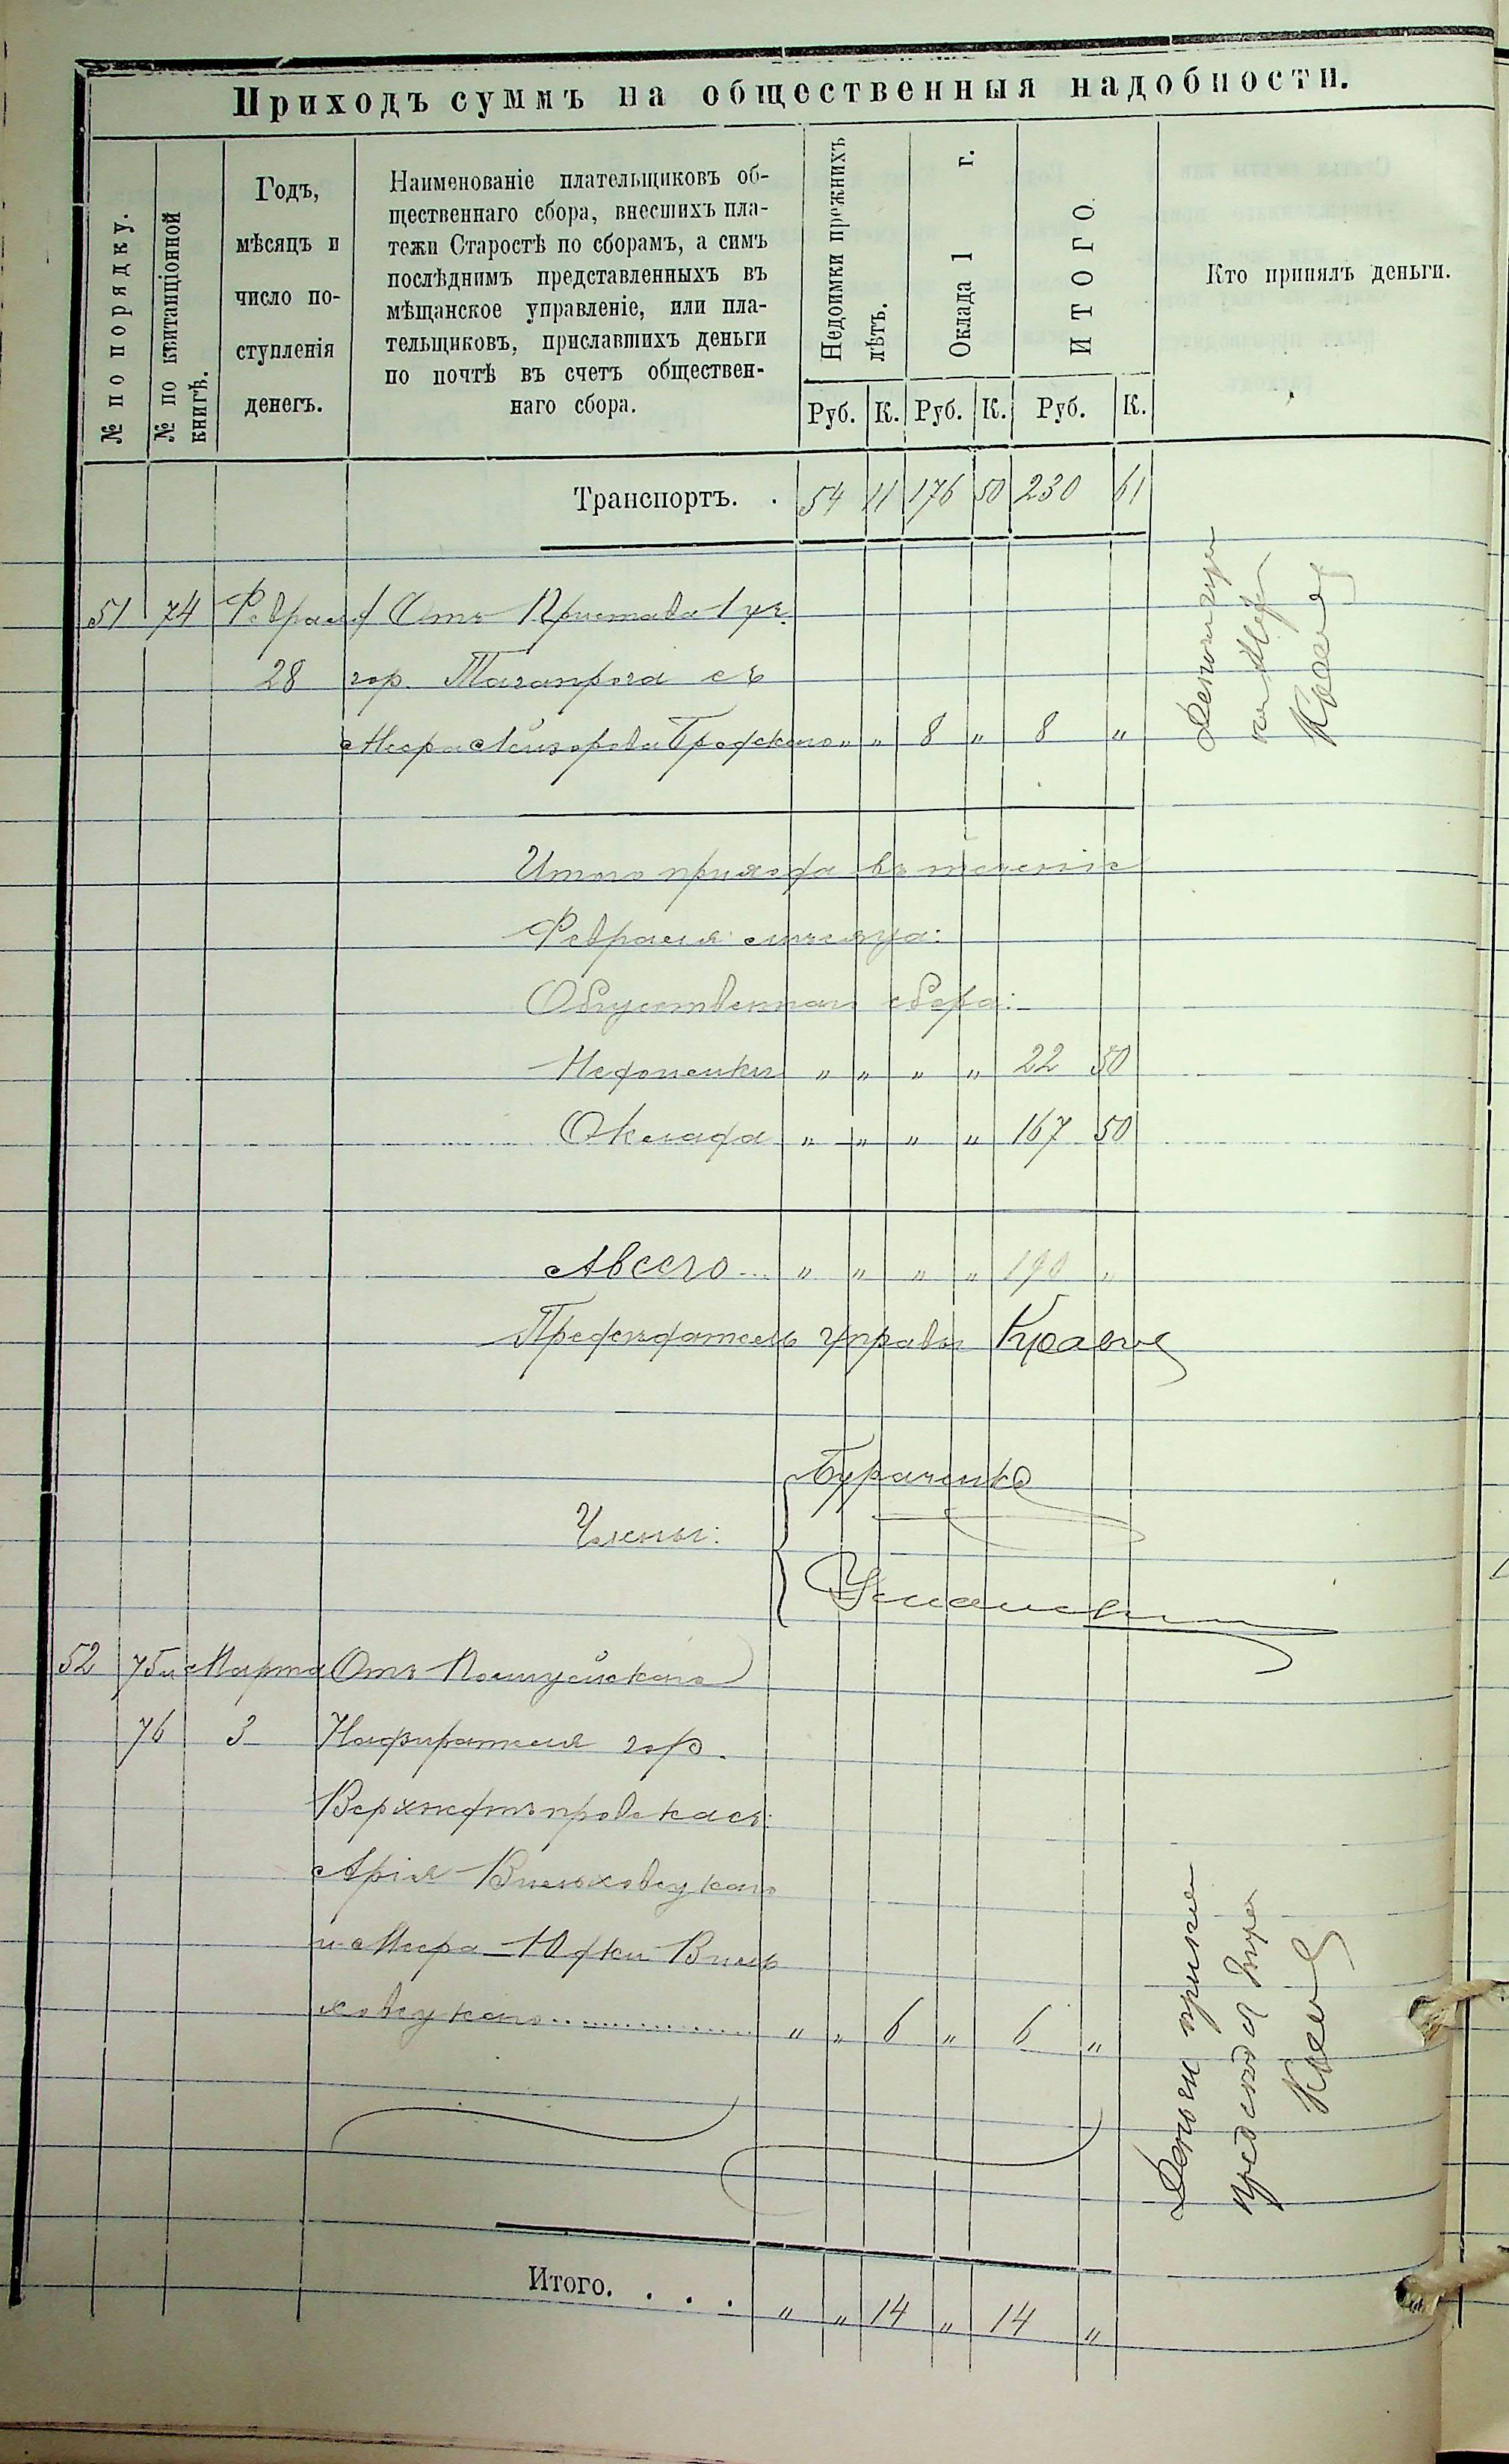 Приходъ суммъ на общественныя надобности.
№ по порядку.
№ по квитанціонной
книгѣ.
Годъ,
мѣсяцъ и
число по-
ступленія
денегъ.
Наименованіе плательщиковъ об-
щественнаго сбора, внесшихъ пла-
тежи Старостѣ по сборамъ, а симъ
послѣднимъ представленныхъ въ
мѣщанское управленіе, или пла-
тельщиковъ, приславшихъ деньги
по почтѣ въ счетъ обществен-
наго сбора.
Недоимки прежнихъ
лѣтъ.
Оклада 1 г.
ИТОГО
Кто принялъ деньги.
Руб. К. Руб. К. Руб. К.
Транспортъ. . 54 11 176 50 230 61
51 74 Февраля Отъ Пристава 1 уч.
28 гор. Таганрога съ
Меера Лейзерова Бродскаго „ „ 8 „ 8 „
Итого прихода въ теченіе
Февраля мѣсяца:
Общественнаго сбора:
Недоимки „ „ „ „ 22 50
Оклада „ „ „ „ 167 50
А всего „ „ „ „ 190 „
Предсѣдатель Управы
Члены:
Бураченко
52 75 и Марта Отъ Полицейскаго
76 3 Надзирателя гор.
Верхнеднѣпровска съ
Арія Вильховецкаго
и Меера-Юдки Виль
ховецкаго „ „ 6 „ 6 „
Деньги
Деньги принялъ
Итого. . . . „ „ 14 „ 14 „